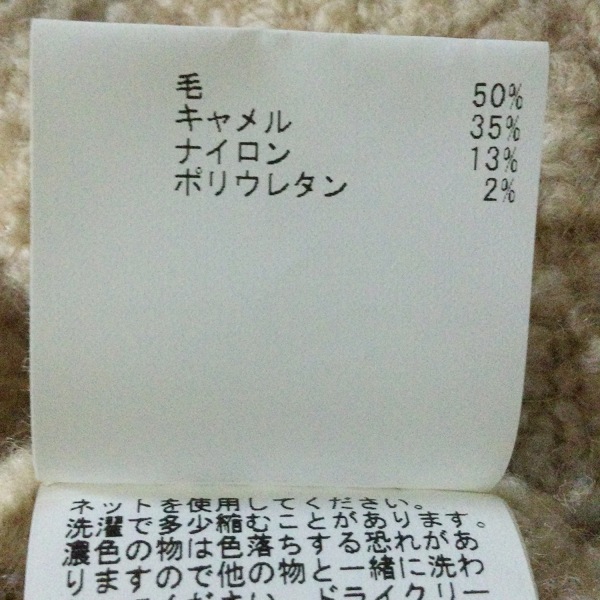 毛 50%
キャメル 35%
ナイロン 13%
ポリウレタン 2%
ネットを使用してください。
洗濯で多少縮むことがあります。
濃色の物は色落ちする恐れがあ
りますので他の物と一緒に洗わ
ドライクリー